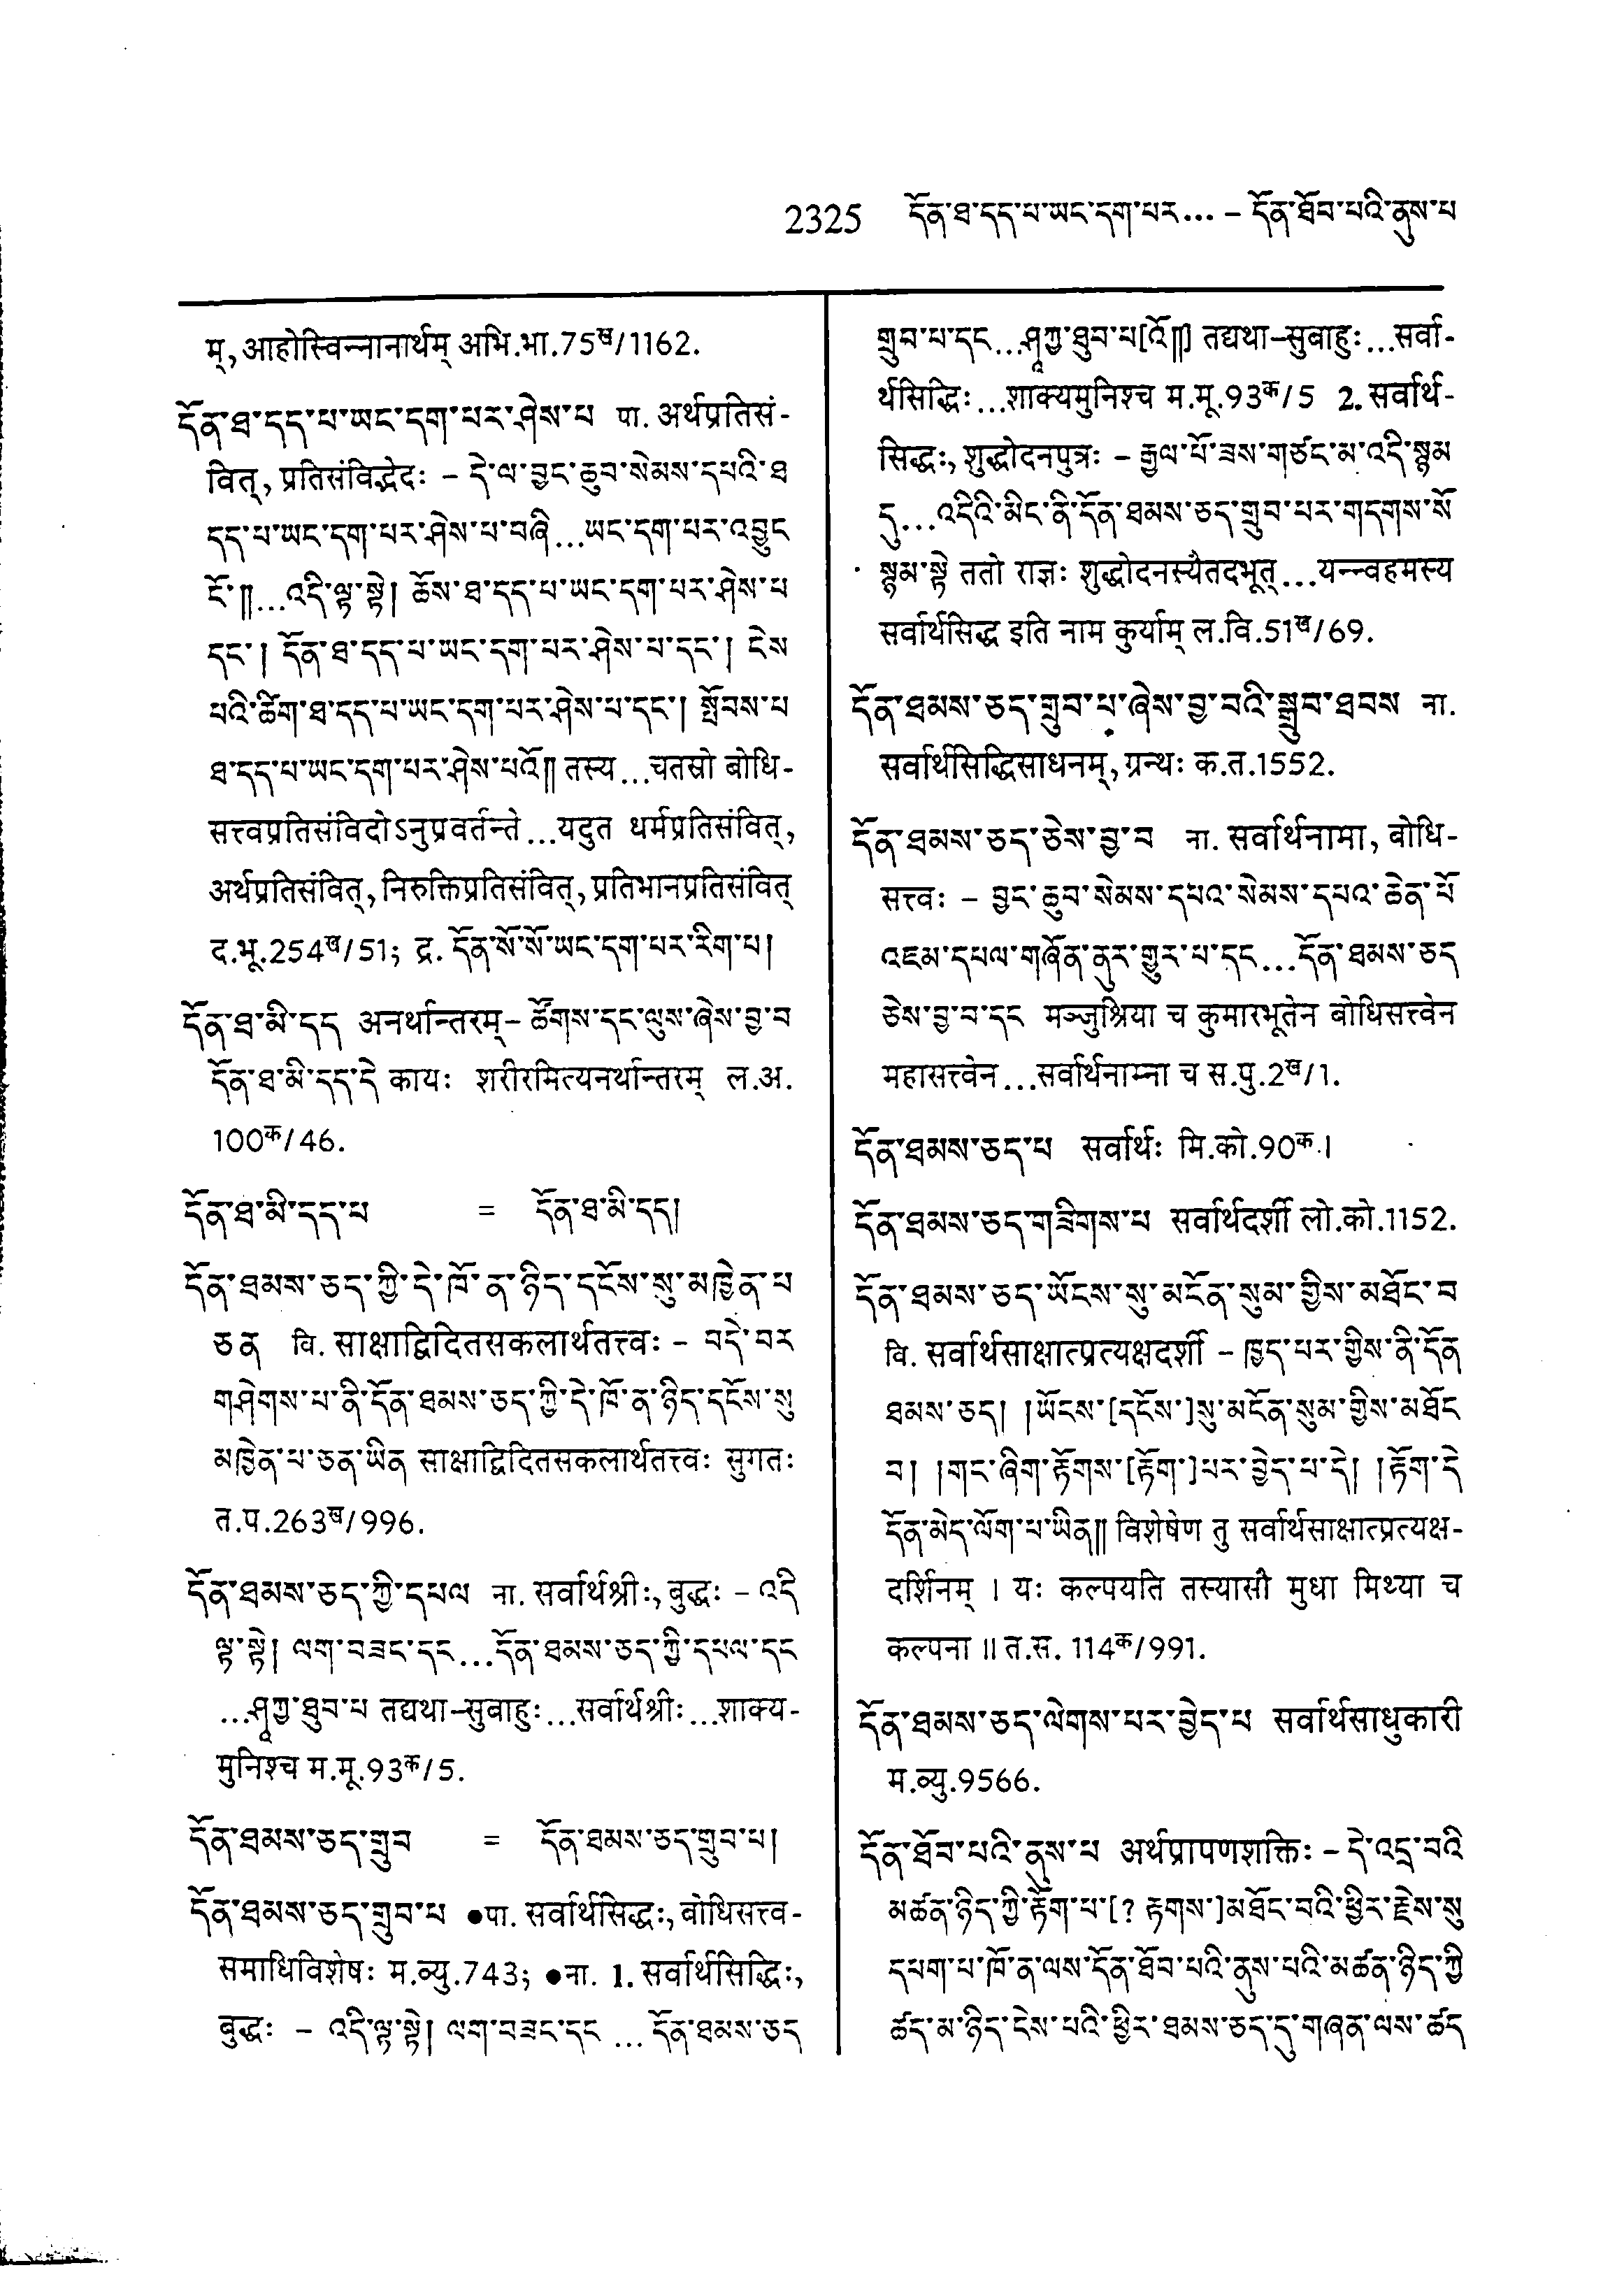 2325 དོན་ཐ་དད་པ་ཡང་དག་པར... – དོན་ཐོབ་པའི་ནུས་པ
म्, आहोस्विन्नानार्थम् अभि.भा.75ख/1162.
དོན་ཐ་དད་པ་ཡང་དག་པར་ཤེས་པ पा. अर्थप्रतिसं-
वित्, प्रतिसंविद्भेदः – དེ་ལ་བྱང་ཆུབ་སེམས་དཔའི་ཐ
དད་པ་ཡང་དག་པར་ཤེས་པ་བཞི...ཡང་དག་པར་འབྱུང
ངོ་༎...འདི་ལྟ་སྟེ། ཆོས་ཐ་དད་པ་ཡང་དག་པར་ཤེས་པ
དང་། དོན་ཐ་དད་པ་ཡང་དག་པར་ཤེས་པ་དང་། ངེས
པའི་ཚིག་ཐ་དད་པ་ཡང་དག་པར་ཤེས་པ་དང་། སྤོབས་པ
ཐ་དད་པ་ཡང་དག་པར་ཤེས་པའོ༎ तस्य...चतस्रो बोधि-
सत्त्वप्रतिसंविदोऽनुप्रवर्तन्ते...यदुत धर्मप्रतिसंवित्,
अर्थप्रतिसंवित्, निरुक्तिप्रतिसंवित्, प्रतिभानप्रतिसंवित्
द.भू.254ख/51; द्र. དོན་སོ་སོ་ཡང་དག་པར་རིག་པ།
དོན་ཐ་མི་དད अनर्थान्तरम् – ཚོགས་དང་ལུས་ཞེས་བྱ་བ
དོན་ཐ་མི་དད་དེ कायः शरीरमित्यनर्थान्तरम् ल.अ.
100क/46.
དོན་ཐ་མི་དད་པ = དོན་ཐ་མི་དད།
དོན་ཐམས་ཅད་ཀྱི་དེ་ཁོ་ན་ཉིད་དངོས་སུ་མཁྱེན་པ
ཅན वि. साक्षाद्विदितसकलार्थतत्त्वः – བདེ་བར
གཤེགས་པ་ནི་དོན་ཐམས་ཅད་ཀྱི་དེ་ཁོ་ན་ཉིད་དངོས་སུ
མཁྱེན་པ་ཅན་ཡིན साक्षाद्विदितसकलार्थतत्त्वः सुगतः
त.प.263ख/996.
དོན་ཐམས་ཅད་ཀྱི་དཔལ ना. सर्वार्थश्रीः, बुद्धः – འདི
ལྟ་སྟེ། ལག་བཟང་དང...དོན་ཐམས་ཅད་ཀྱི་དཔལ་དང
...ཤཱཀྱ་ཐུབ་པ तद्यथा–सुवाहुः...सर्वार्थश्रीः...शाक्य-
मुनिश्च म.मू.93क/5.
དོན་ཐམས་ཅད་གྲུབ = དོན་ཐམས་ཅད་གྲུབ་པ།
དོན་ཐམས་ཅད་གྲུབ་པ ●पा. सर्वार्थसिद्धः, बोधिसत्त्व-
समाधिविशेषः म.व्यु.743; ●ना. 1. सर्वार्थसिद्धिः,
बुद्धः – འདི་ལྟ་སྟེ། ལག་བཟང་དང ... དོན་ཐམས་ཅད
གྲུབ་པ་དང...ཤཱཀྱ་ཐུབ་པ[འོ༎] तद्यथा–सुवाहुः...सर्वा-
र्थसिद्धिः...शाक्यमुनिश्च म.मू.93क/5 2. सर्वार्थ-
सिद्धः, शुद्धोदनपुत्रः – རྒྱལ་པོ་ཟས་གཙང་མ་འདི་སྙམ
དུ...འདིའི་མིང་ནི་དོན་ཐམས་ཅད་གྲུབ་པར་གདགས་སོ
སྙམ་སྟེ ततो राज्ञः शुद्धोदनस्यैतदभूत्...यन्न्वहमस्य
सर्वार्थसिद्ध इति नाम कुर्याम् ल.वि.51ख/69.
དོན་ཐམས་ཅད་གྲུབ་པ་ཞེས་བྱ་བའི་སྒྲུབ་ཐབས ना.
सर्वार्थसिद्धिसाधनम्, ग्रन्थः क.त.1552.
དོན་ཐམས་ཅད་ཅེས་བྱ་བ ना. सर्वार्थनामा, बोधि-
सत्त्वः – བྱང་ཆུབ་སེམས་དཔའ་སེམས་དཔའ་ཆེན་པོ
འཇམ་དཔལ་གཞོན་ནུར་གྱུར་པ་དང...དོན་ཐམས་ཅད
ཅེས་བྱ་བ་དང मञ्जुश्रिया च कुमारभूतेन बोधिसत्त्वेन
महासत्त्वेन...सर्वार्थनाम्ना च स.पु.2ख/1.
དོན་ཐམས་ཅད་པ सर्वार्थः मि.को.90क।
དོན་ཐམས་ཅད་གཟིགས་པ सर्वार्थदर्शी लो.को.1152.
དོན་ཐམས་ཅད་ཡོངས་སུ་མངོན་སུམ་གྱིས་མཐོང་བ
वि. सर्वार्थसाक्षात्प्रत्यक्षदर्शी – ཁྱད་པར་གྱིས་ནི་དོན
ཐམས་ཅད། །ཡོངས་[དངོས་]སུ་མངོན་སུམ་གྱིས་མཐོང
བ། །གང་ཞིག་རྟོགས་[རྟོག་]པར་བྱེད་པ་དེ། །རྟོག་དེ
དོན་མེད་ལོག་པ་ཡིན༎ विशेषेण तु सर्वार्थसाक्षात्प्रत्यक्ष-
दर्शिनम् । यः कल्पयति तस्यासौ मुधा मिथ्या च
कल्पना ॥ त.स. 114क/991.
དོན་ཐམས་ཅད་ལེགས་པར་བྱེད་པ सर्वार्थसाधुकारी
म.व्यु.9566.
དོན་ཐོབ་པའི་ནུས་པ अर्थप्रापणशक्तिः – དེ་འདྲ་བའི
མཚན་ཉིད་ཀྱི་རྟོག་པ་[? རྟགས་]མཐོང་བའི་ཕྱིར་རྗེས་སུ
དཔག་པ་ཁོ་ན་ལས་དོན་ཐོབ་པའི་ནུས་པའི་མཚན་ཉིད་ཀྱི
ཚད་མ་ཉིད་ངེས་པའི་ཕྱིར་ཐམས་ཅད་དུ་གཞན་ལས་ཚད